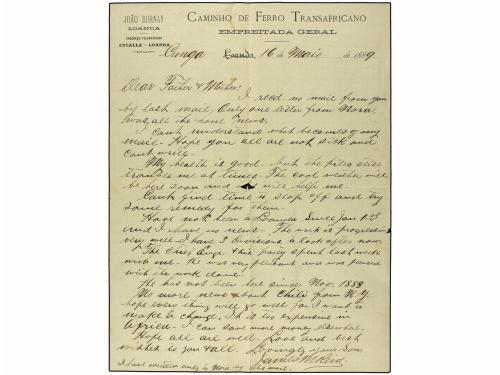 JOÃO BURNAY
LOANDA
ENDEREÇO TELEGRAPHICO
LUCALLA - LOANDA
CAMINHO DE FERRO TRANSAFRICANO
EMPREITADA GERAL
Cunga Loanda, 16 de Maio de 1889
Dear Father & Mother:
I recd. no mail from you
by last mail, Only one letter from Nora,
was all the home news.
I can't understand what becomes of my
mail - Hope you all are not sick and
can't write -
My health is good - but the piles still
trouble me at times - The cool weather will
be here soon and will help me -
Can't find time to stop off and try
some remedy for them -
Have not been to Loanda since Jan 1st
and I have no news - The work is progressing
very well - I have 3 Divisions to look after now.
The Chf. Engr. & his party spent last week
with me - He was very pleasant and was pleased
with the work done!
He has not been here since Nov. 1888
No more news about Chili from N.Y.
hope every thing will go well for I want to
make a change. It is too expensive in
Africa - I can save more money elsewhere.
Hope all are well - Love and best
wishes to you & all. Lovingly your Son,
James
I have written only to Nora by this mail -